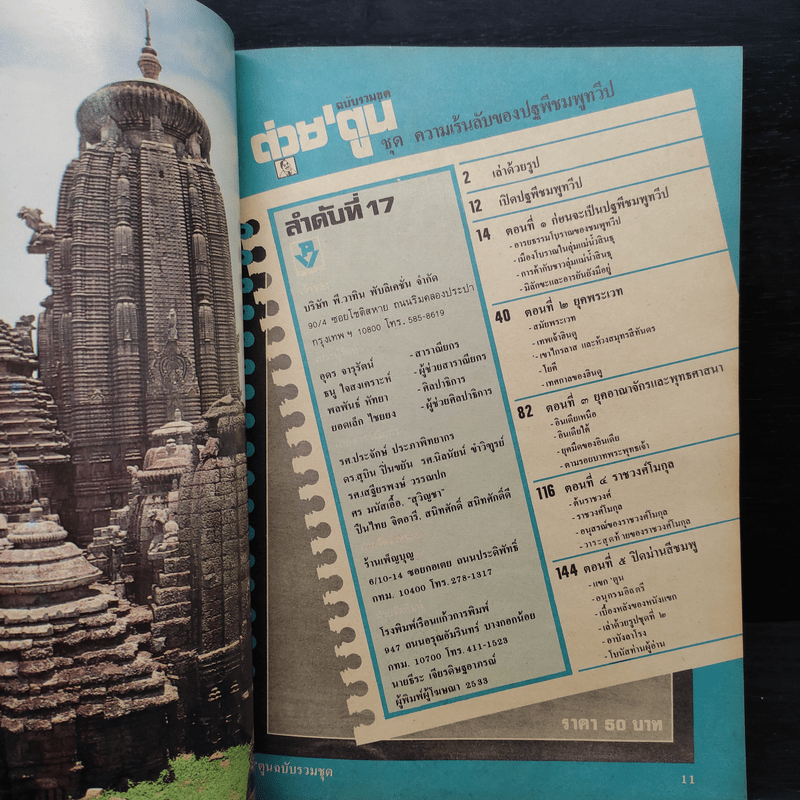 ฉบับรวมชุด
ต่วย'ตูน
ชุด ความเร้นลับของปฐพีชมพูทวีป
ลำดับที่ 17
บริษัท พี.วาทิน พับลิเคชั่น จำกัด
90/4 ซอยโชติสหาย ถนนริมคลองประปา
กรุงเทพฯ 10800 โทร. 585-8619
อุดร จารุรัตน์ - สาราณียกร
ธนู ใจสงเคราะห์ - ผู้ช่วยสาราณียกร
พลพันธ์ ทัทยา - ศิลปาธิการ
ยอดเล็ก ไชยยง - ผู้ช่วยศิลปาธิการ
รศ.ประจักษ์ ประภาพิทยากร
ดร.สุบิน ปิ่นขยัน รศ.นิลนัยน์ ขำวิฑูรย์
รศ.เสฐียรพงษ์ วรรณปก
ศร มนัสเอื้อ, "สุวิญชา"
ปิ่นไทย จิตอารี, สนิทศักดิ์ สนิทศักดิ์ดี
ร้านเพ็ญบุญ
6/10-14 ซอยกอเตย ถนนประดิพัทธิ์
กทม. 10400 โทร. 278-1317
โรงพิมพ์เรือนแก้วการพิมพ์
947 ถนนอรุณอัมรินทร์ บางกอกน้อย
กทม. 10700 โทร. 411-1523
นายธีระ เจียรดิษฐอาภรณ์
ผู้พิมพ์ผู้โฆษณา 2533
2 เล่าด้วยรูป
12 เปิดปฐพีชมพูทวีป
14 ตอนที่ ๑ ก่อนจะเป็นปฐพีชมพูทวีป
-อารยธรรมโบราณของชมพูทวีป
-เมืองโบราณในลุ่มแม่น้ำสินธุ
-การค้ากับชาวลุ่มแม่น้ำสินธุ
-มิลักขะและอารยันยังมีอยู่
40 ตอนที่ ๒ ยุคพระเวท
-สมัยพระเวท
-เทพเจ้าฮินดู
-เขาไกรลาส และห้วงสมุทรสีทันดร
-โยคี
-เทศกาลของฮินดู
82 ตอนที่ ๓ ยุคอาณาจักรและพุทธศาสนา
-อินเดียเหนือ
-อินเดียใต้
-ยุคมืดของอินเดีย
-ตามรอยบาทพระพุทธเจ้า
116 ตอนที่ ๔ ราชวงศ์โมกุล
-ต้นราชวงศ์
-ราชวงศ์โมกุล
-อนุสรณ์ของราชวงศ์โมกุล
-วาระสุดท้ายของราชวงศ์โมกุล
144 ตอนที่ ๕ ปิดม่านสีชมพู
-แขก 'ตูน
-อนุกรมอิลตรี
-เบื้องหลังของหนังแขก
-เล่าด้วยรูปชุดที่ ๒
-อาบังลาโรง
-โบนัสท่านผู้อ่าน
ราคา 50 บาท
'ตูนฉบับรวมชุด
11